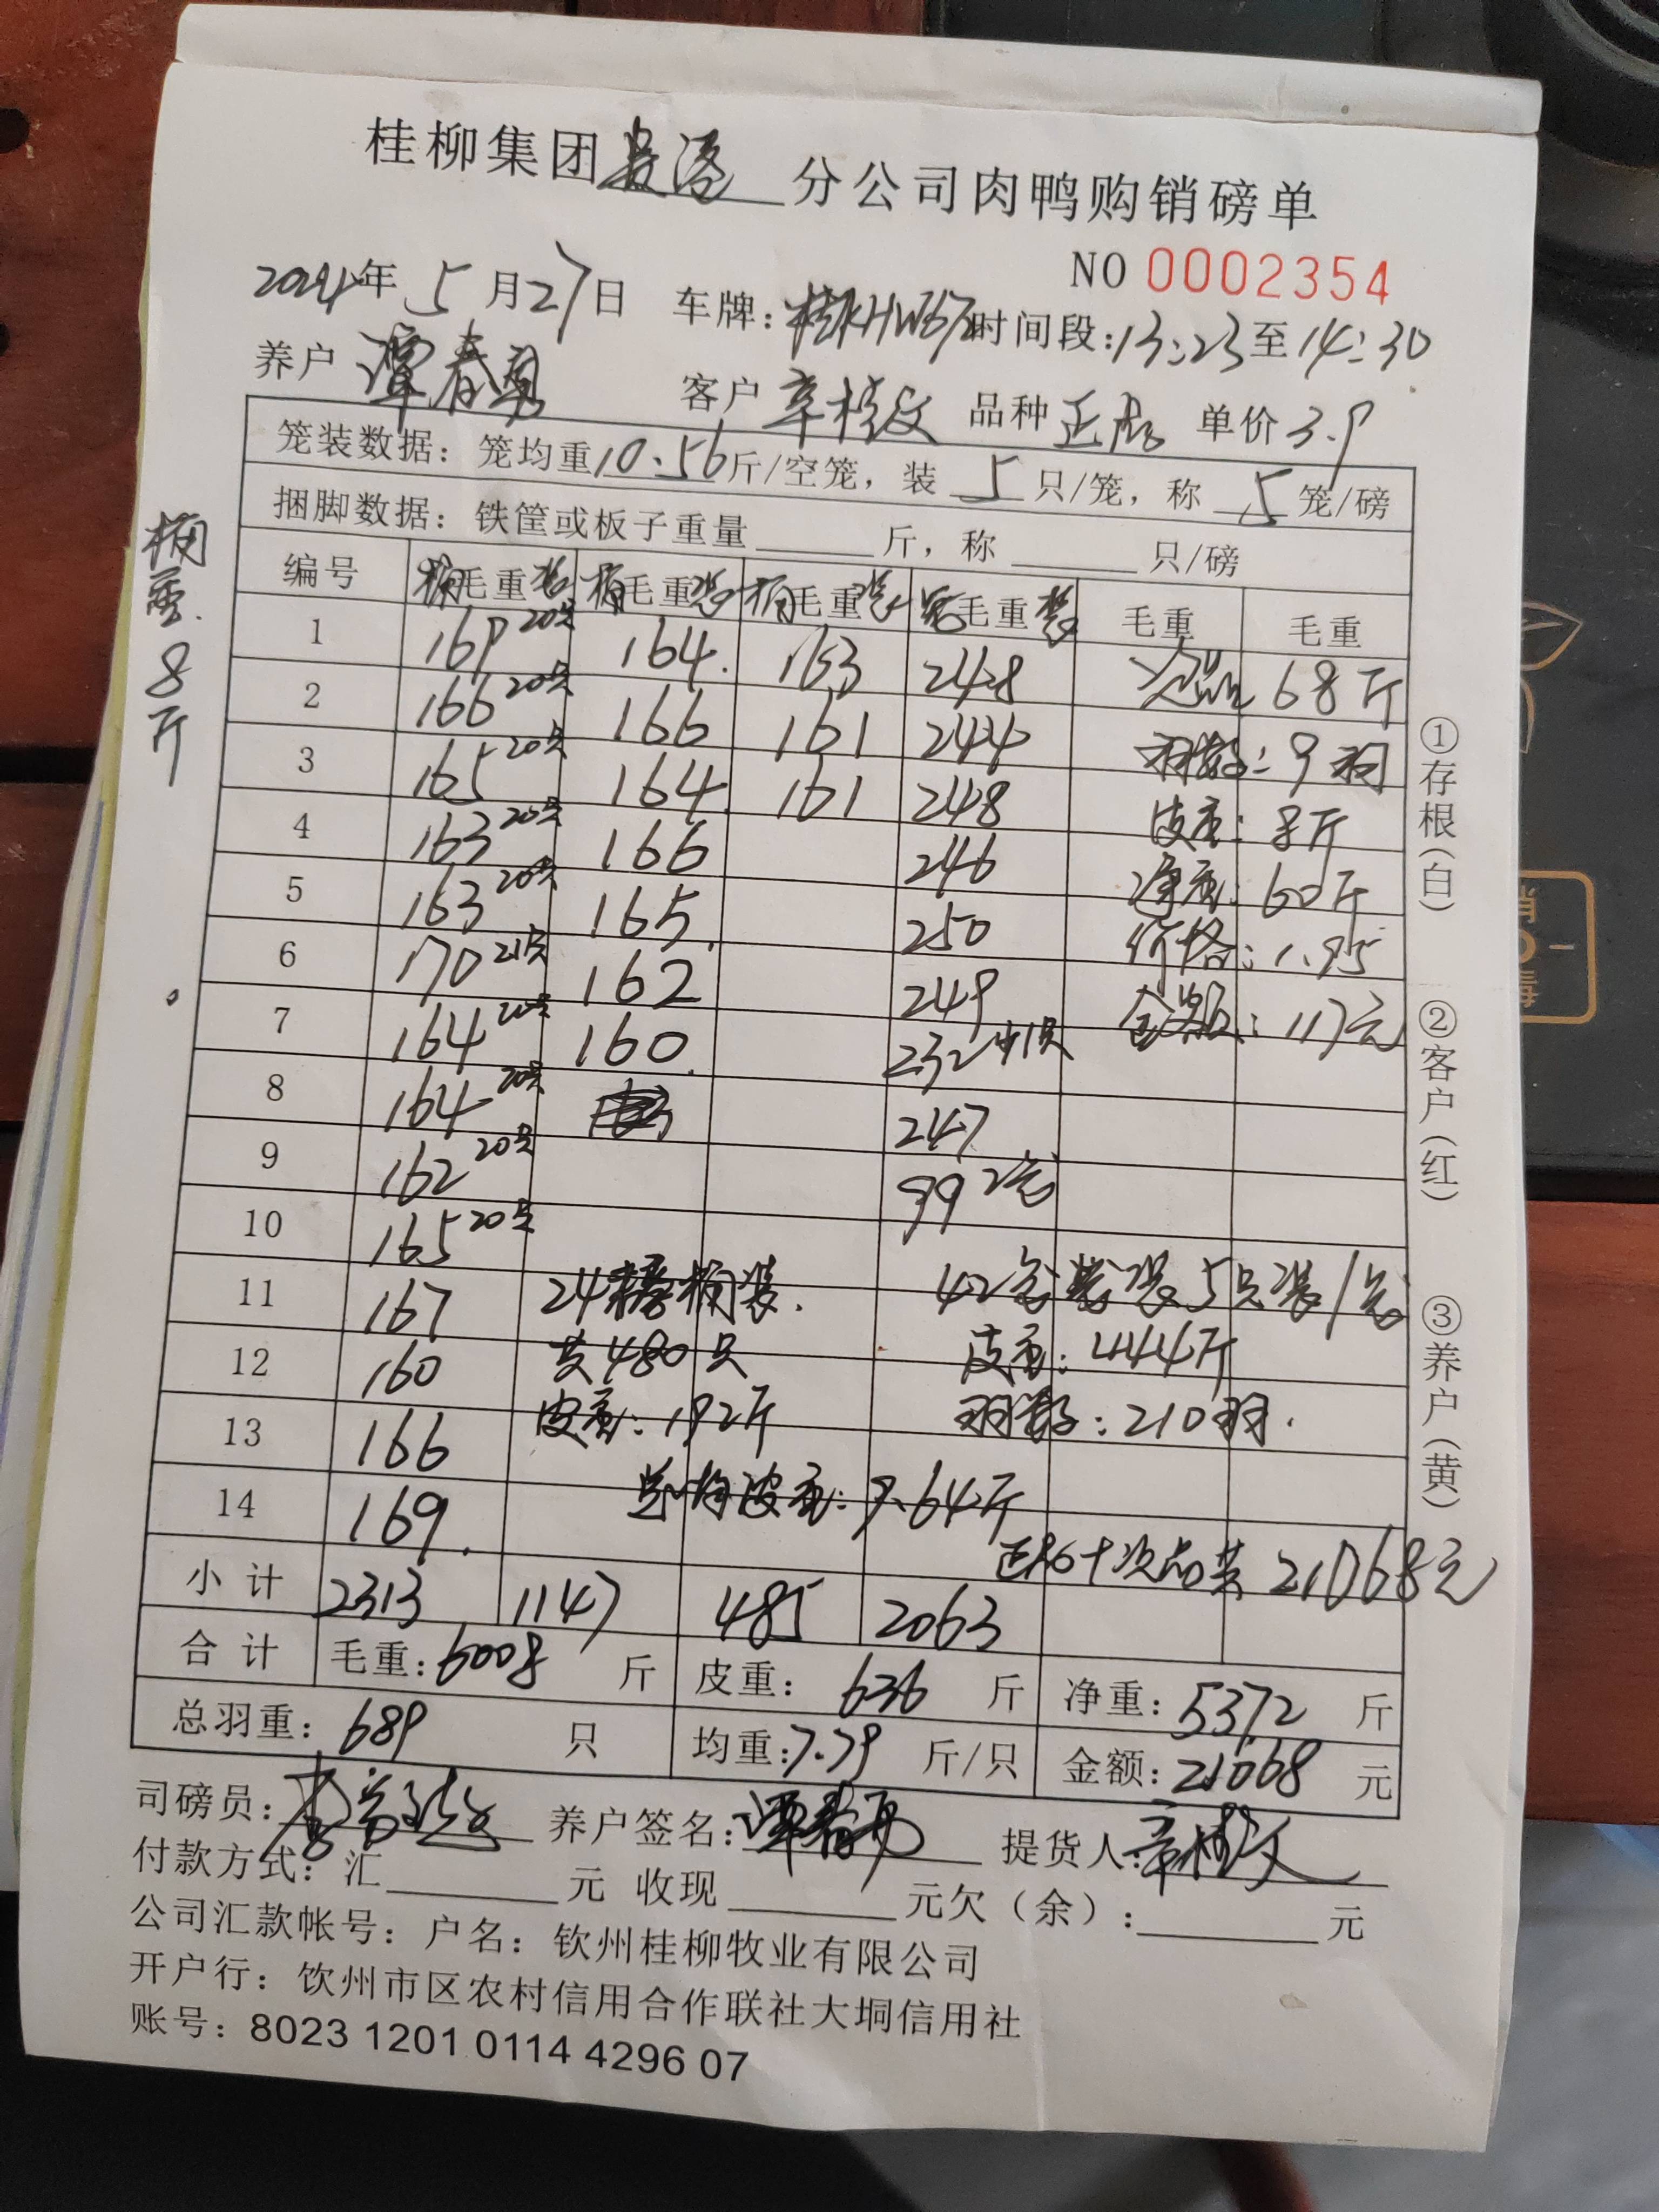 桂柳集团 分公司肉鸭购销磅单
NO 0002354
2024年 5月27日 车牌: 时间段:13:23至14:30
养户 谭春勇 客户 章桂文 品种 正品 单价 3.9
笼装数据: 笼均重10.56斤/空笼, 装 5 只/笼, 称 5 笼/磅
捆脚数据: 铁筐或板子重量 斤, 称 只/磅
桶重 8斤
编号 桶毛重装 桶毛重装 桶毛重装 笼毛重装 毛重 毛重
1 169 20只 164 163 248 次品 68斤
2 166 20只 166 161 244 羽数: 9羽
3 165 20只 164 161 248 皮重: 8斤
4 163 20只 166 246 净重: 60斤
5 163 20只 165 250 价格: 1.95
6 170 21只 162 249 金额: 117元
7 164 20只 160 232 少1只
8 164 20只 247
9 162 20只 99 2笼
10 165 20只
11 167 24 桶装. 42笼装 5只装/笼
12 160 共480只 皮重: 444斤
13 166 皮重: 192斤 羽数: 210羽.
14 169 总均皮重: 9.64斤
正品+次品共 21068元
小计 2313 1147 485 2063
合计 毛重: 6008 斤 皮重: 636 斤 净重: 5372 斤
总羽重: 689 只 均重: 7.79 斤/只 金额: 21068 元
司磅员: 养户签名: 谭春勇 提货人: 章桂文
付款方式: 汇 元 收现 元欠(余): 元
公司汇款帐号: 户名: 钦州桂柳牧业有限公司
开户行: 饮州市区农村信用合作联社大垌信用社
账号: 8023 1201 0114 4296 07
①存根(白)
②客户(红)
③养户(黄)